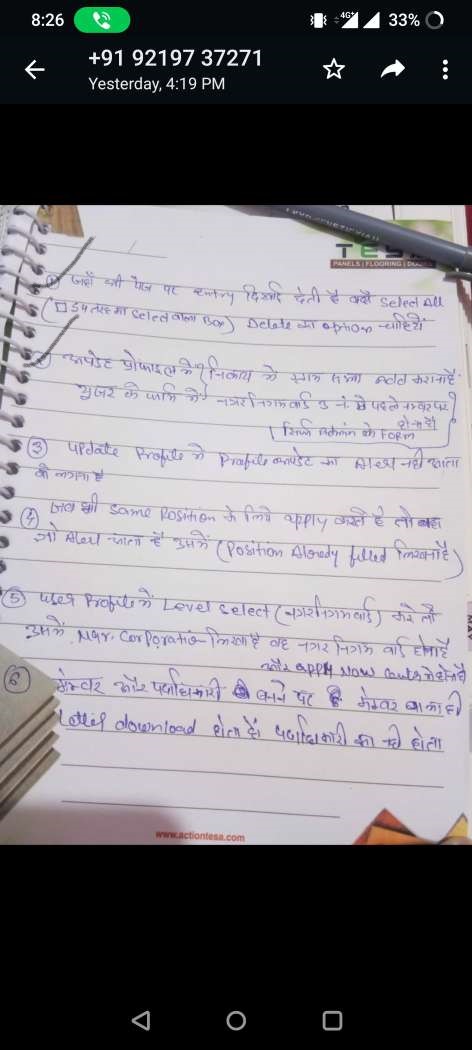 8:26
4G+
33%
+91 92197 37271
Yesterday, 4:19 PM
TES
PANELS | FLOORING | DOORS
① जहाँ भी पेज पर entry दिखाई देती है वहाँ Select All
(□ इस तरह का select वाला Box) Delete का option चाहिये
अपडेट प्रोफाइल में निकाय में Add कराना है
यूजर के फॉर्म में नगर निगम वार्ड 3 नं. पे पहले नम्बर पर
होना है
सिर्फ Admin के Form
③ Update Profile में Profile अपडेट का Alert नहीं आता
④ जब भी same Position के लिये apply करते है तो वहा
जो Alert आता है उसमें (Position Already filled लिखना है)
⑤ User Profile में Level select (नगर निगम वार्ड) करे तो
उसमें Nagr. Corporation लिखा है वह नगर निगम वार्ड होना है
और apply Now
⑥ मेम्बर और पदाधिकारी बनने पर मेम्बर का ही
letter download होता है। पदाधिकारी का नहीं होता
www.actiontesa.com